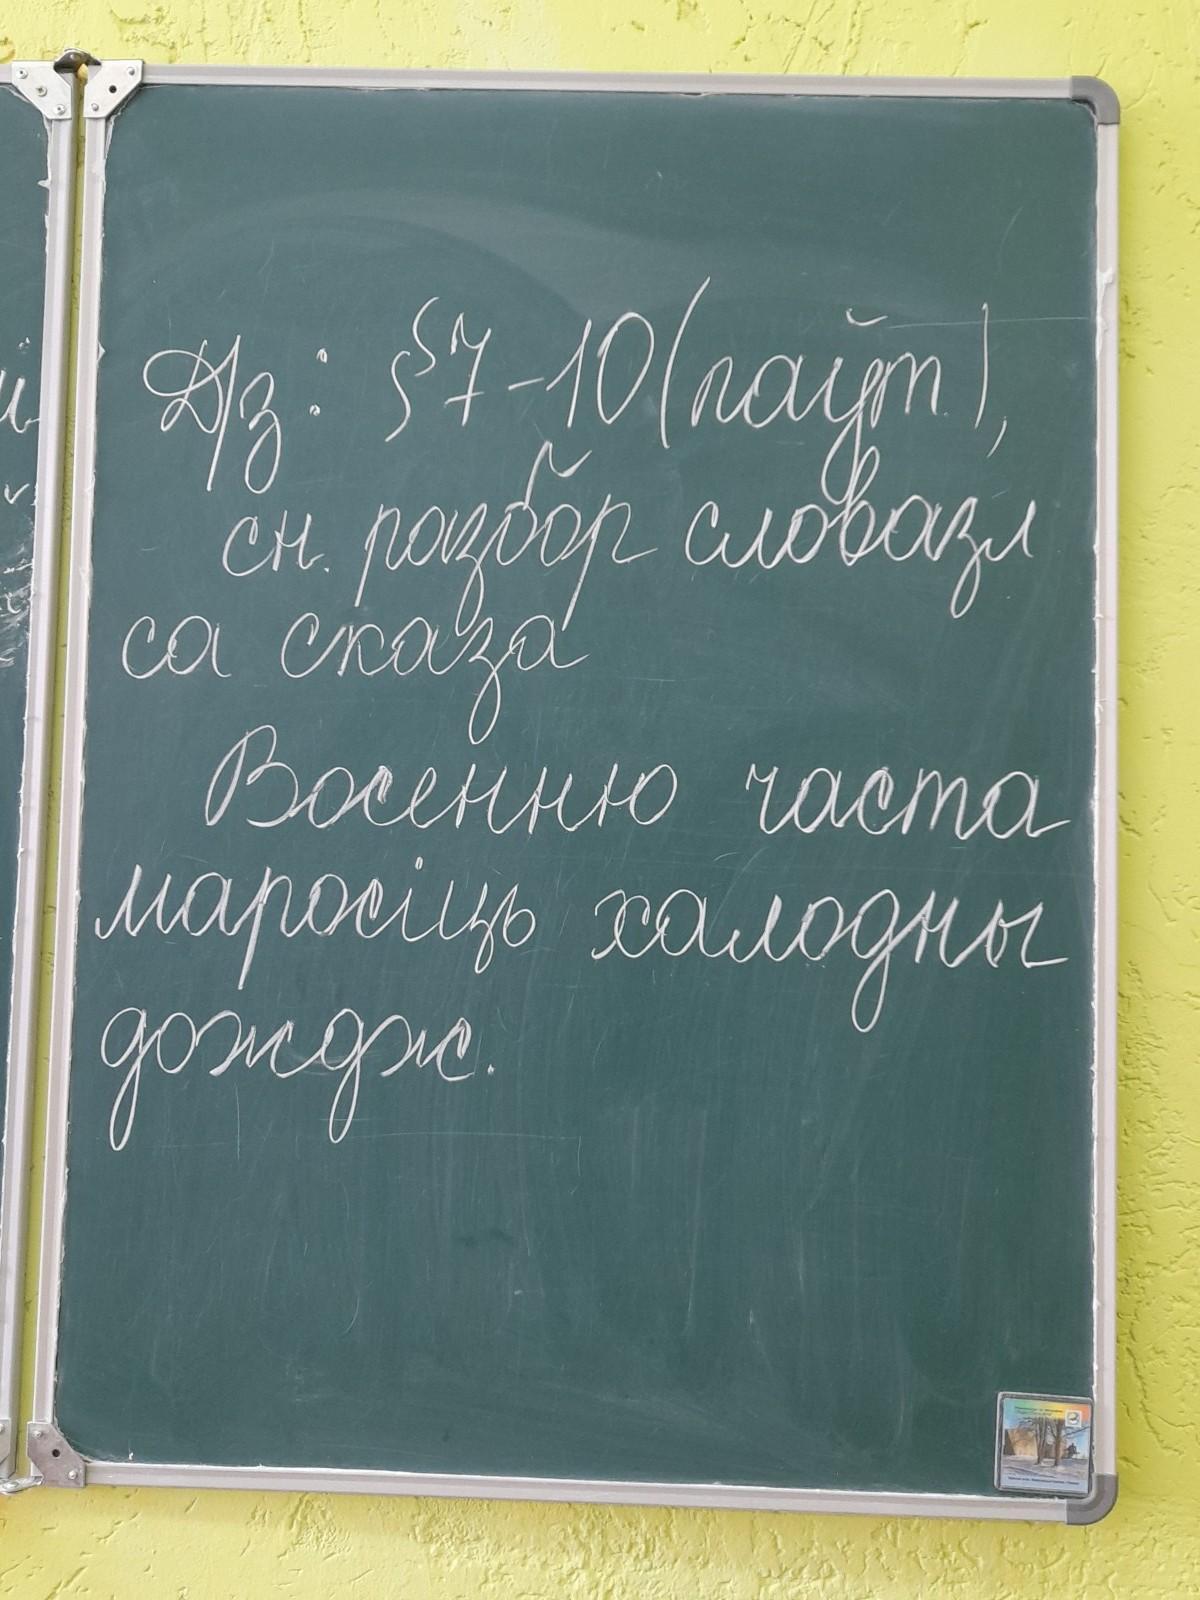 Д/з: §7-10 (паўт.),
сн. разбор словазл
са сказа
Восенню часта
маросіць халодны
дождж.